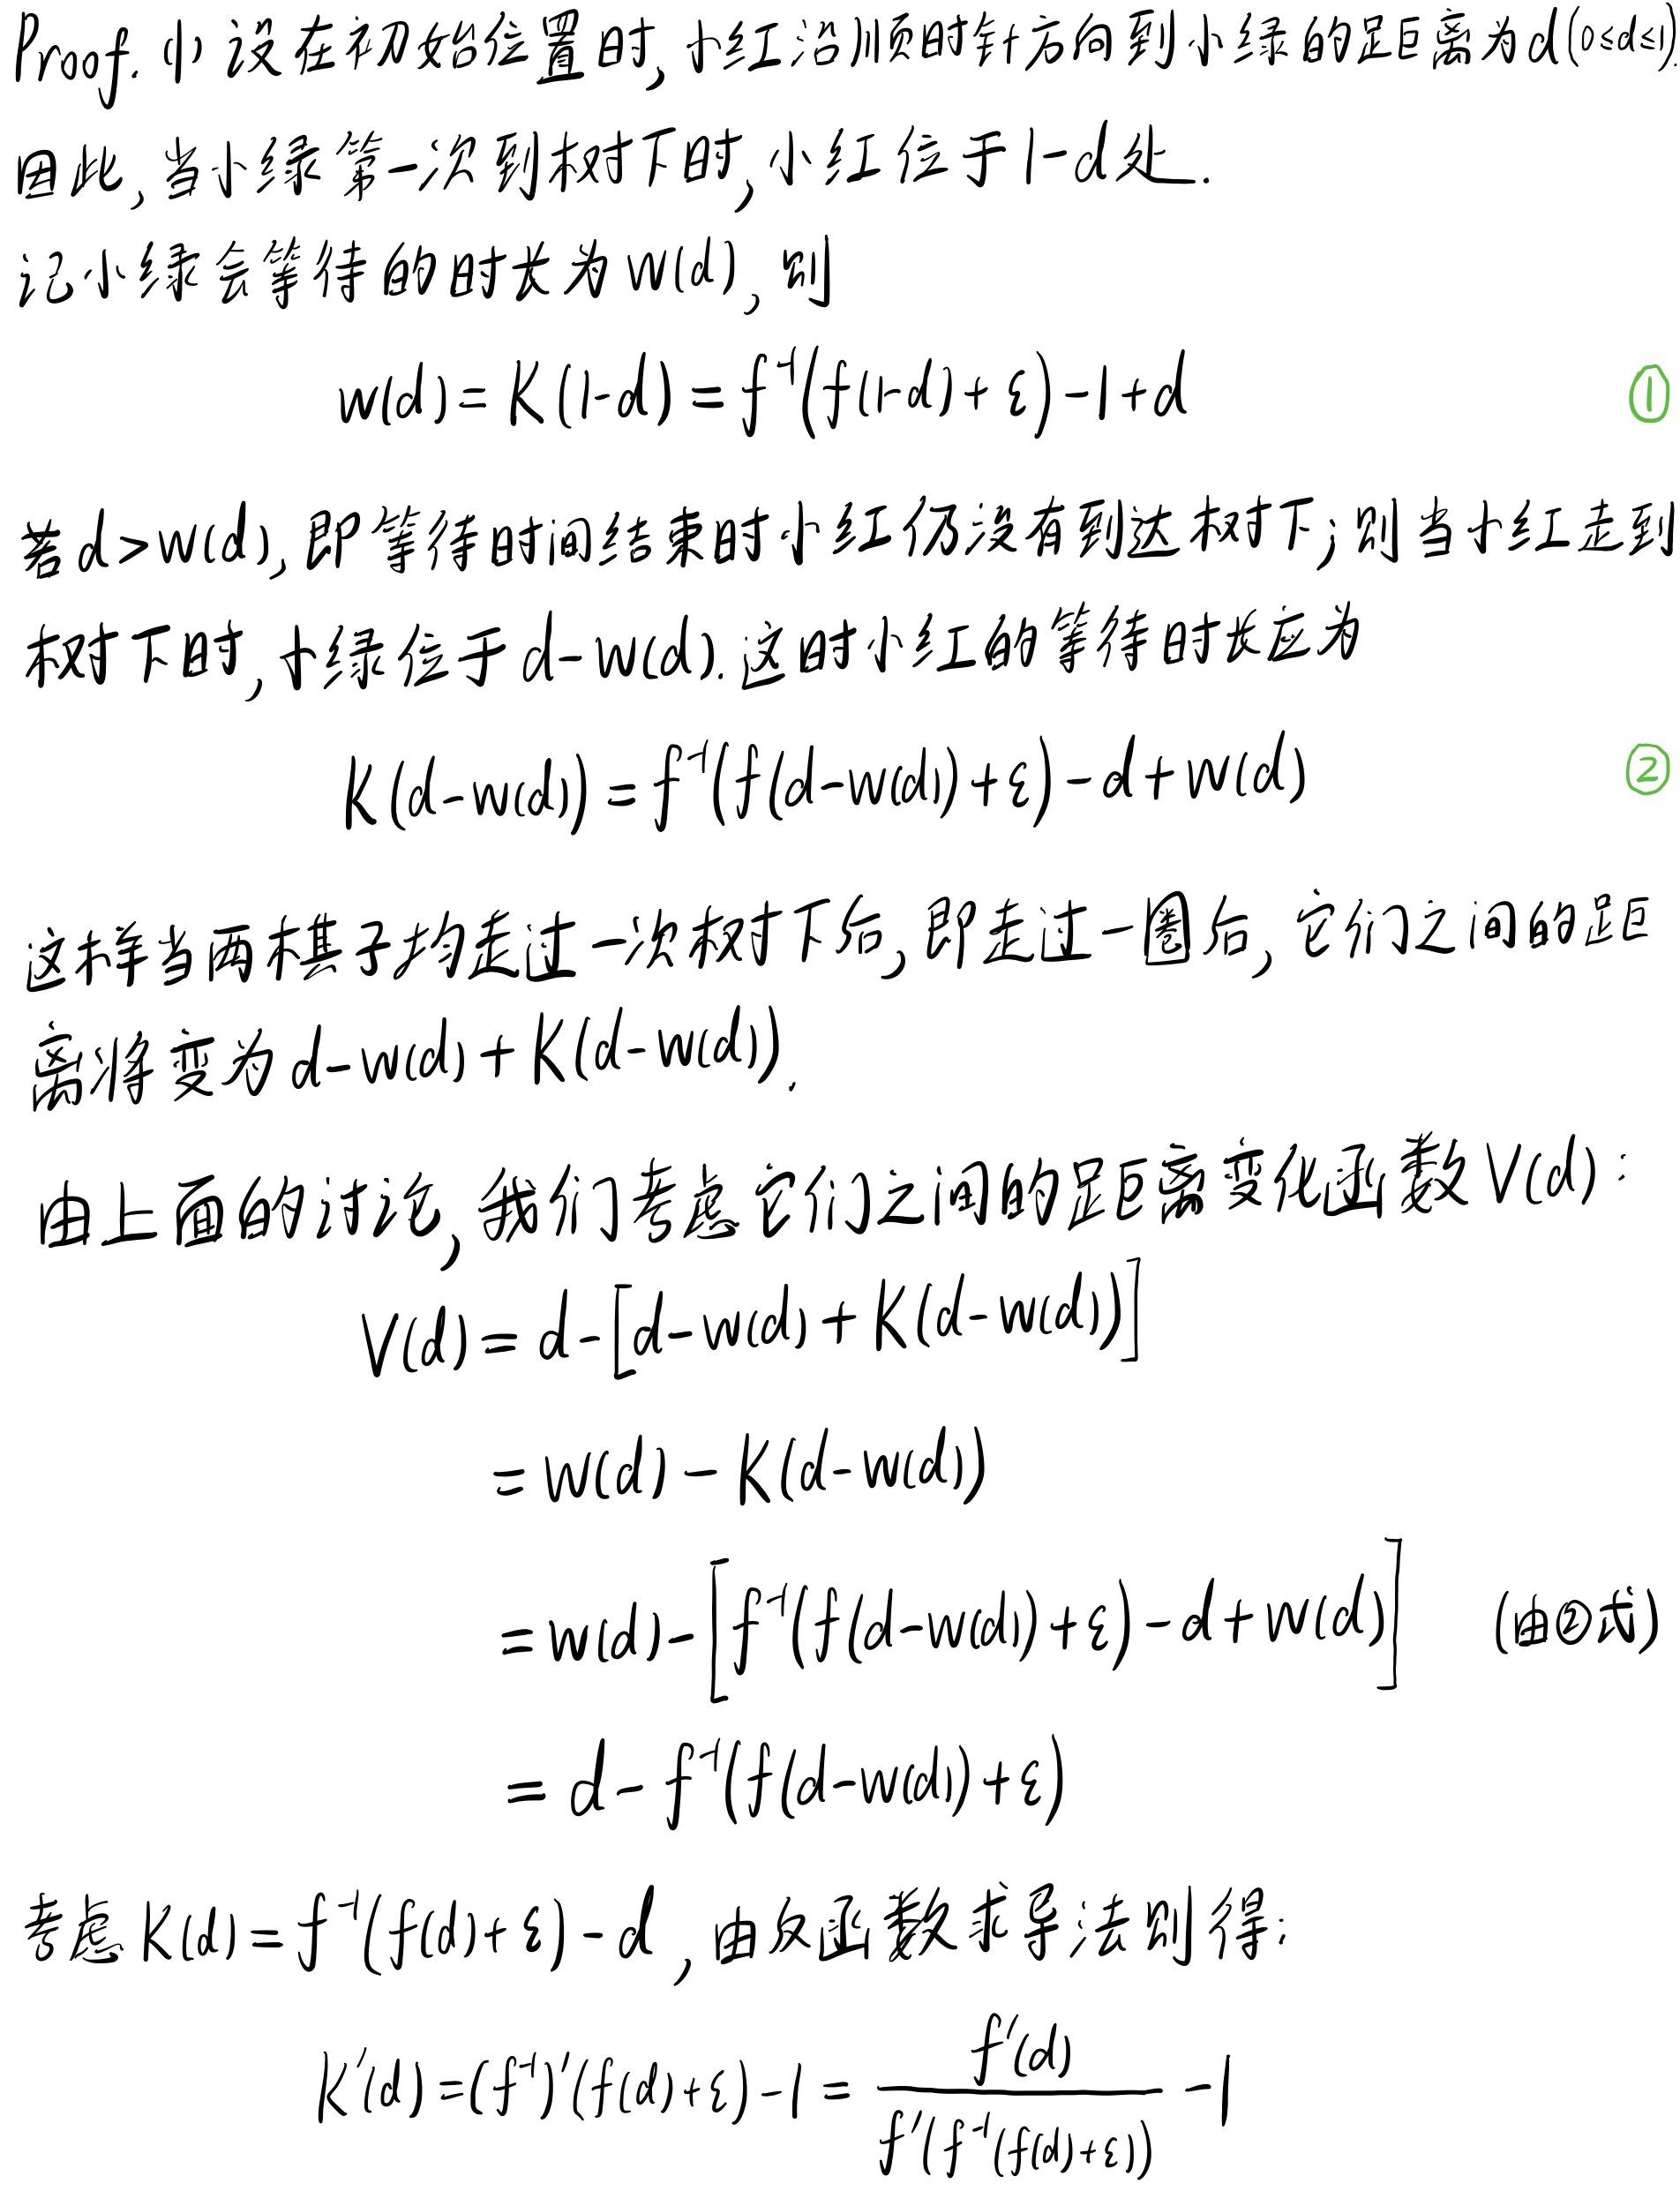 Proof. (1) 设在初始位置时, 小红沿顺时针方向到小绿的距离为d(0≤d≤1).
因此, 当小绿第一次到树下时, 小红位于1-d处.
记小绿会等待的时长为W(d), 则
w(d) = K(1-d) = f⁻¹(f(1-d)+ε)-1+d ①
若d>w(d), 即等待时间结束时小红仍没有到达树下; 则当小红走到
树下时, 小绿位于d-w(d). 这时小红的等待时长应为
K(d-w(d)) = f⁻¹(f(d-w(d))+ε)-d+w(d) ②
这样当两棋子均走过一次树下后, 即走过一圈后, 它们之间的距
离将变为d-w(d)+K(d-w(d)).
由上面的讨论, 我们考虑它们之间的距离变化函数V(d):
V(d) = d-[d-w(d)+K(d-w(d))]
= w(d)-K(d-w(d))
= w(d)-[f⁻¹(f(d-w(d))+ε)-d+w(d)] (由②式)
= d-f⁻¹(f(d-w(d))+ε)
考虑K(d)=f⁻¹(f(d)+ε)-d, 由反函数求导法则得:
K'(d) = (f⁻¹)'(f(d)+ε)-1 = f'(d)/f'(f⁻¹(f(d)+ε)) -1